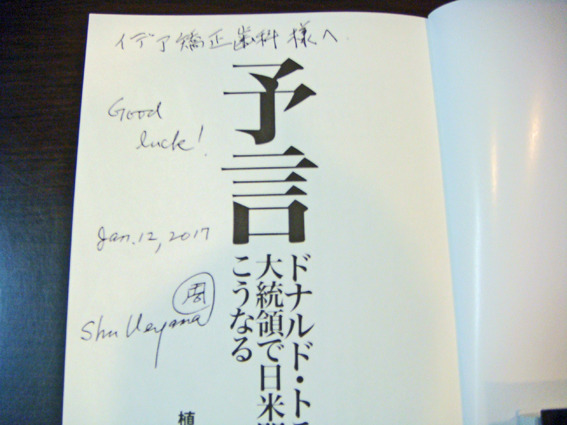 イデア矯正歯科 様へ
Good
luck!
予言
Jan. 12, 2017
ドナルド・ト
大統領で日米
こうなる
周
Shu Ueyama
植